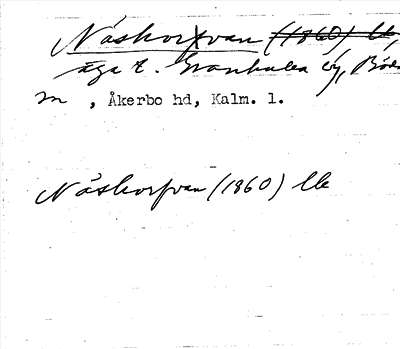 Näskorpvan (1860) lb,
äga t. Granhulta by, Böda
sn , Åkerbo hd, Kalm. l.
Näskorpvan (1860) lb